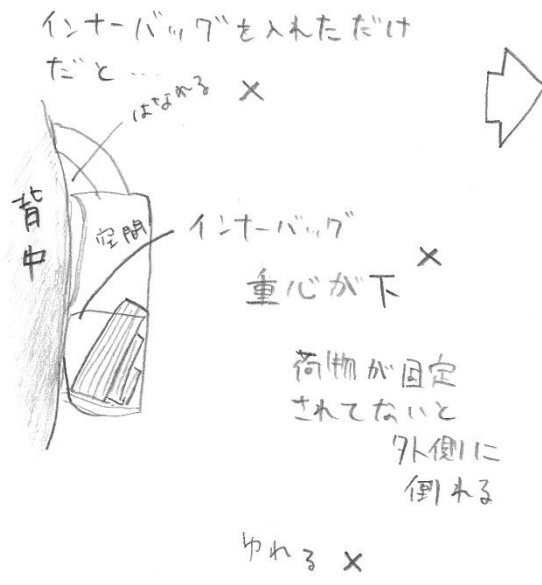 インナーバッグを入れただけ
だと…
はなれる ×
背中
空間
インナーバッグ
重心が下 ×
荷物が固定
されてないと
外側に
倒れる
ゆれる ×